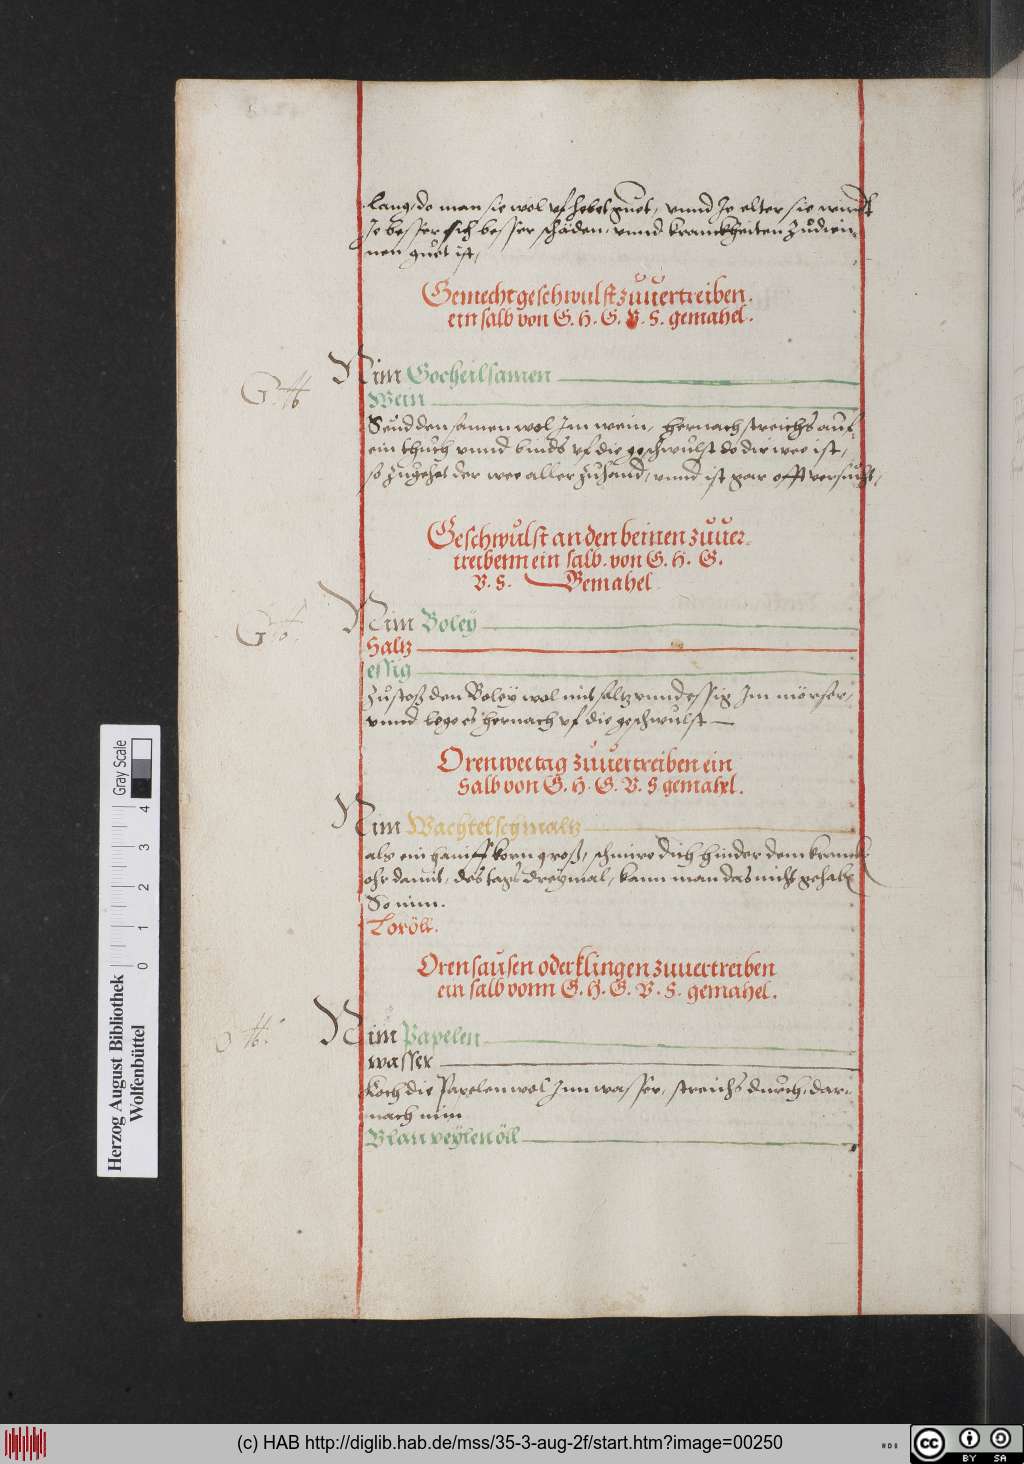 lang, do man sie wol uf hebet guet, vnnd Je elter sie wirdt
Je besser sich besser schäden, vnnd kranckheiten zudien„
nen guet ist,
Gemecht geschwulst zuuertreiben.
ein salb von G. H. G. V. S. gemahel.
Nim Gocheilsamen
Wein
Seud den samen wol Jm wein, hernach streichs auf„
ein thuch vnnd binds uf die geschwulst do die wee ist,
so zugehet der wee aller zuhand, vnnd ist gar offt versucht,
Geschwulst an den beinen zuuer„
treibenn ein salb. von G. H. G.
V. S. Gemahel.
Nim Boley
Saltz
essig
Zustoß den Boley wol mit saltz vnnd essig Jm mörser,
vnnd lege es hernach uf die geschwulst
Oren wee tag zuuertreiben ein
Salb von G. H. G. V. S gemahel.
Nim Wachtelschmaltz
als ein haniff korn groß, schmire dich hinder dem kranck
ohr damit, des tags dreymal, kann man das nicht gehab
So nim.
Loröll.
Oren sausen oder klingen zuuertreiben
ein salb vonn G. H. G. V. S. gemahel.
Nim Papelen
wasser
Koch die Papelen wol Jnn wasser, streichs durch, dar„
nach nim
Blau veylen öll
Herzog August Bibliothek
Wolfenbüttel
0 1 2 3 4
Gray Scale
(c) HAB http://diglib.hab.de/mss/35-3-aug-2f/start.htm?image=00250
cc BY SA